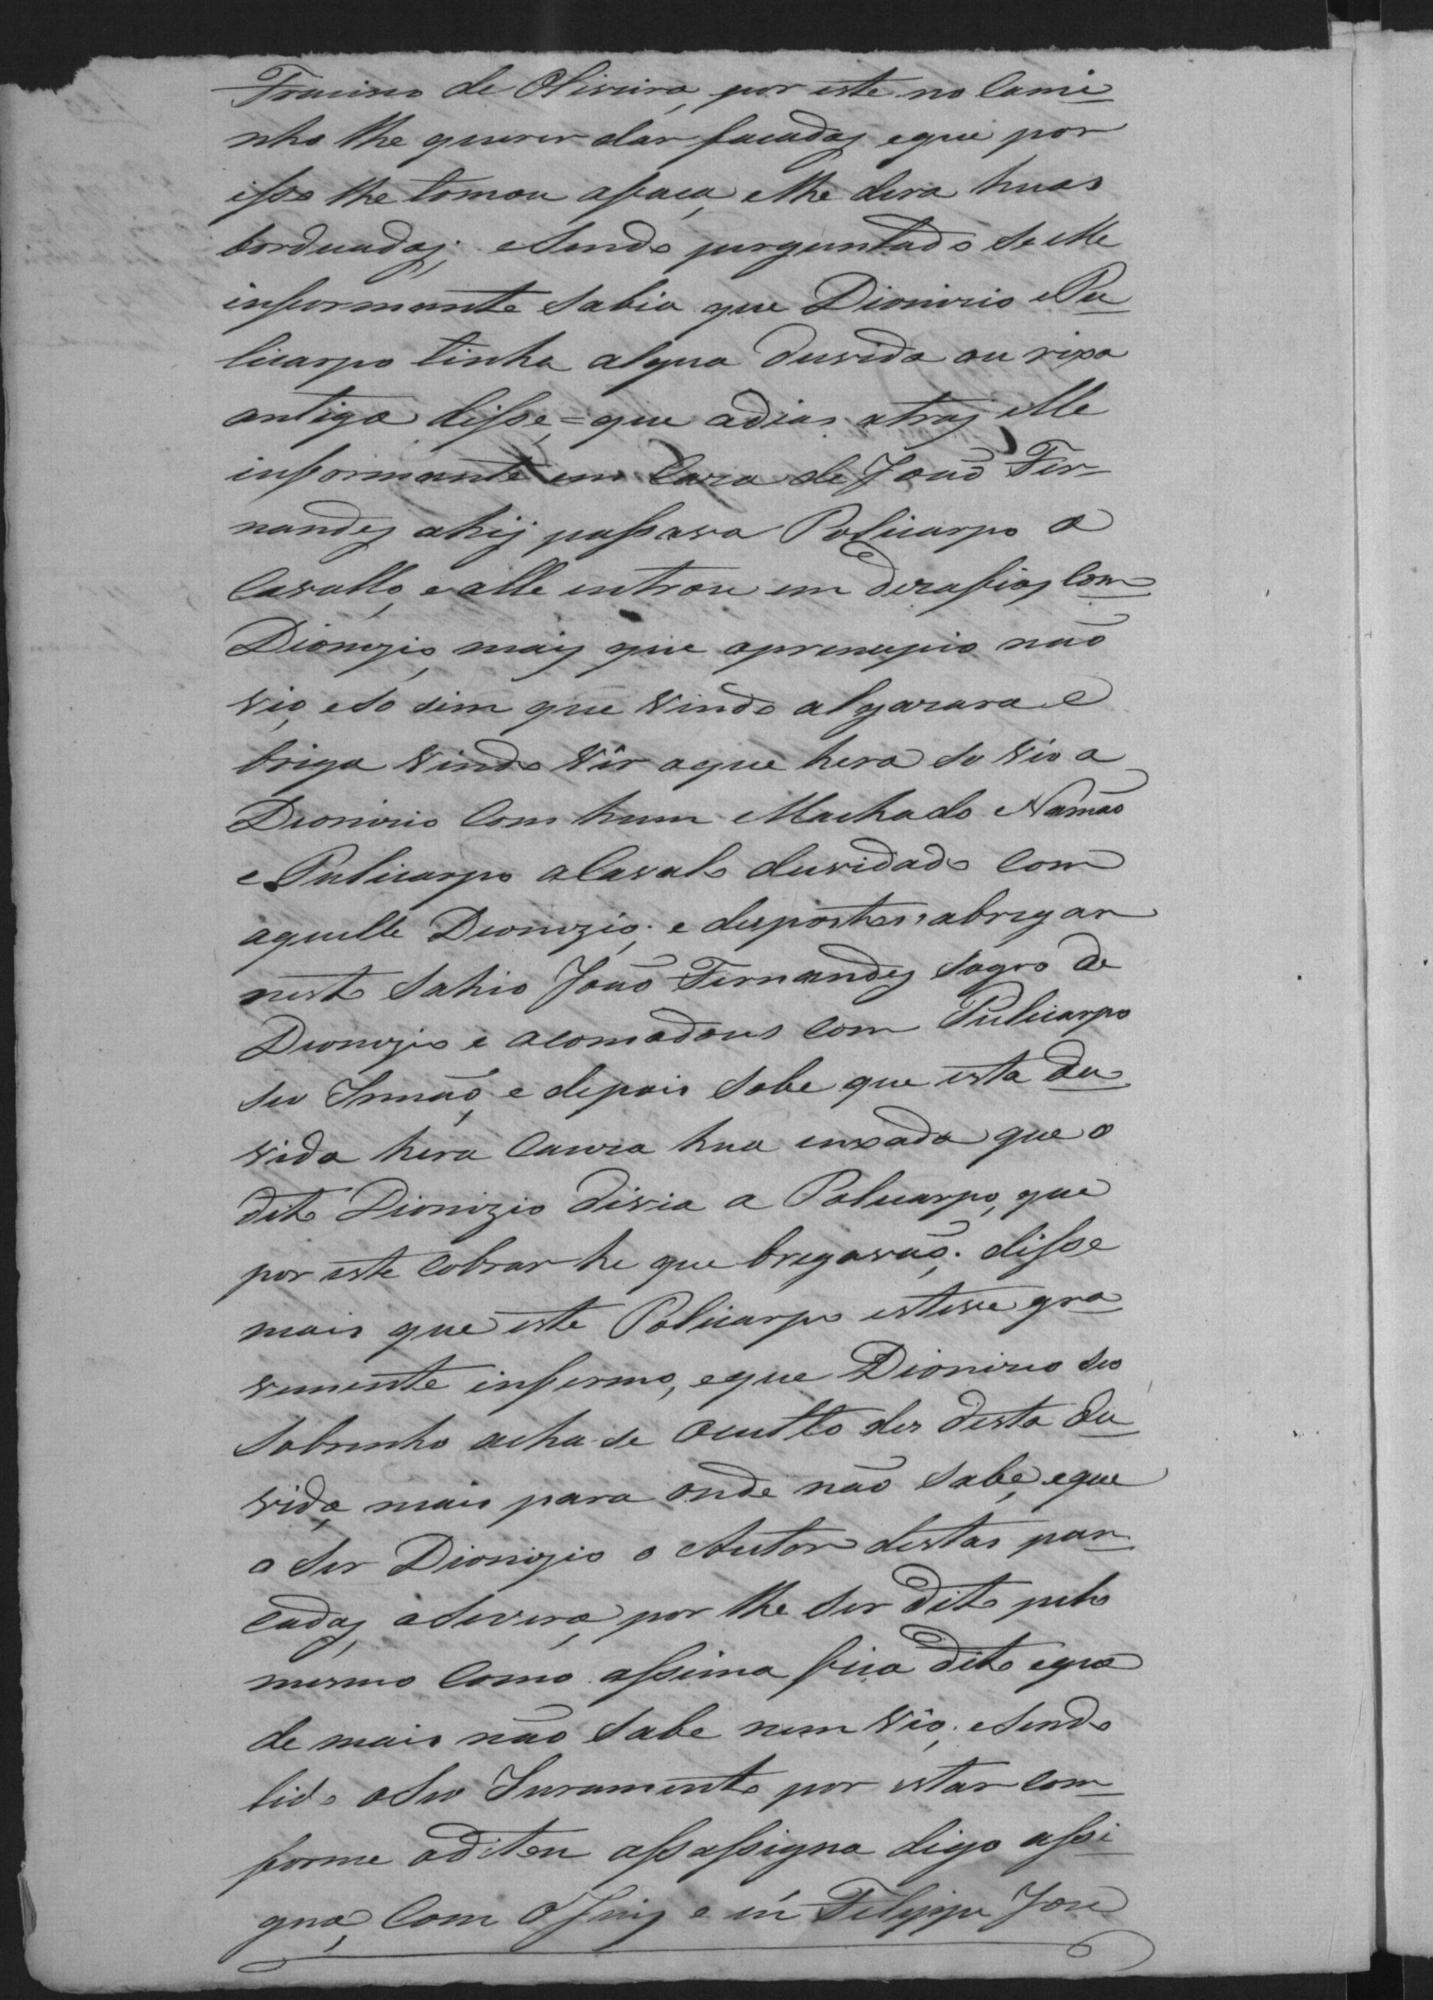 Francisco de Oliveira, por iste no Cami
nho lhe querer dar facadas eque por
isso lhe tomou afaca, elhe dera huas
borduadas; eSendo perguntado se elle
informante Sabia que Dionizio ePu
licarpo tinha algua duvida ou rixa
antiga disse,= que adias atras elle
informante em Caza de João Fer-
nandes ahij passava Policarpo a
Cavallo, e alle entrou em dezafios Com
Dionizio, mais que aprencipio não
vio, eSo sim que vindo algazara e
briga vindo vêr aque hera So vio a
Dionizio Com hum Machado Namão
e Pulicarpo aCavalo duvidado Com
aquelle Dionizio; e dispostos abrigar
nesto Sahio João Fernandes Sogro de
Dionizio e acomadous com Pulicarpo
Seo Irmão, e depois Sabe que esta du
vida hera Cauza hua enxada que o
dito Dionizio divia a Policarpo, que
por este Cobrar he que bregarão; disse
mais que este Policarpo esteve gra
vemente infermo, eque Dionizio seo
Sobrinho acha-se Oculto des desta du
vida, mais para onde não Sabe, eque
o Ser Dionizio o Autor destas pan
cadas, aSevera, por lhe Ser dito pelo
mesmo Como assima fica dito eque
de mais não Sabe nem vio; eSendo
lido oSeo Juramento por estar Com-
forme aditou assassigna digo assi
gna, Com oJuis e eu Felippe Joze